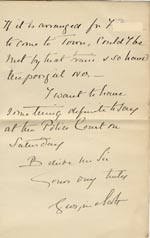 If it is arranged for Y
to come to Town, could he
met by that train & so have
the
I want to have
something definite to say
at the Police Court on
Saturday
Believe me Sir
Yours very truly
George